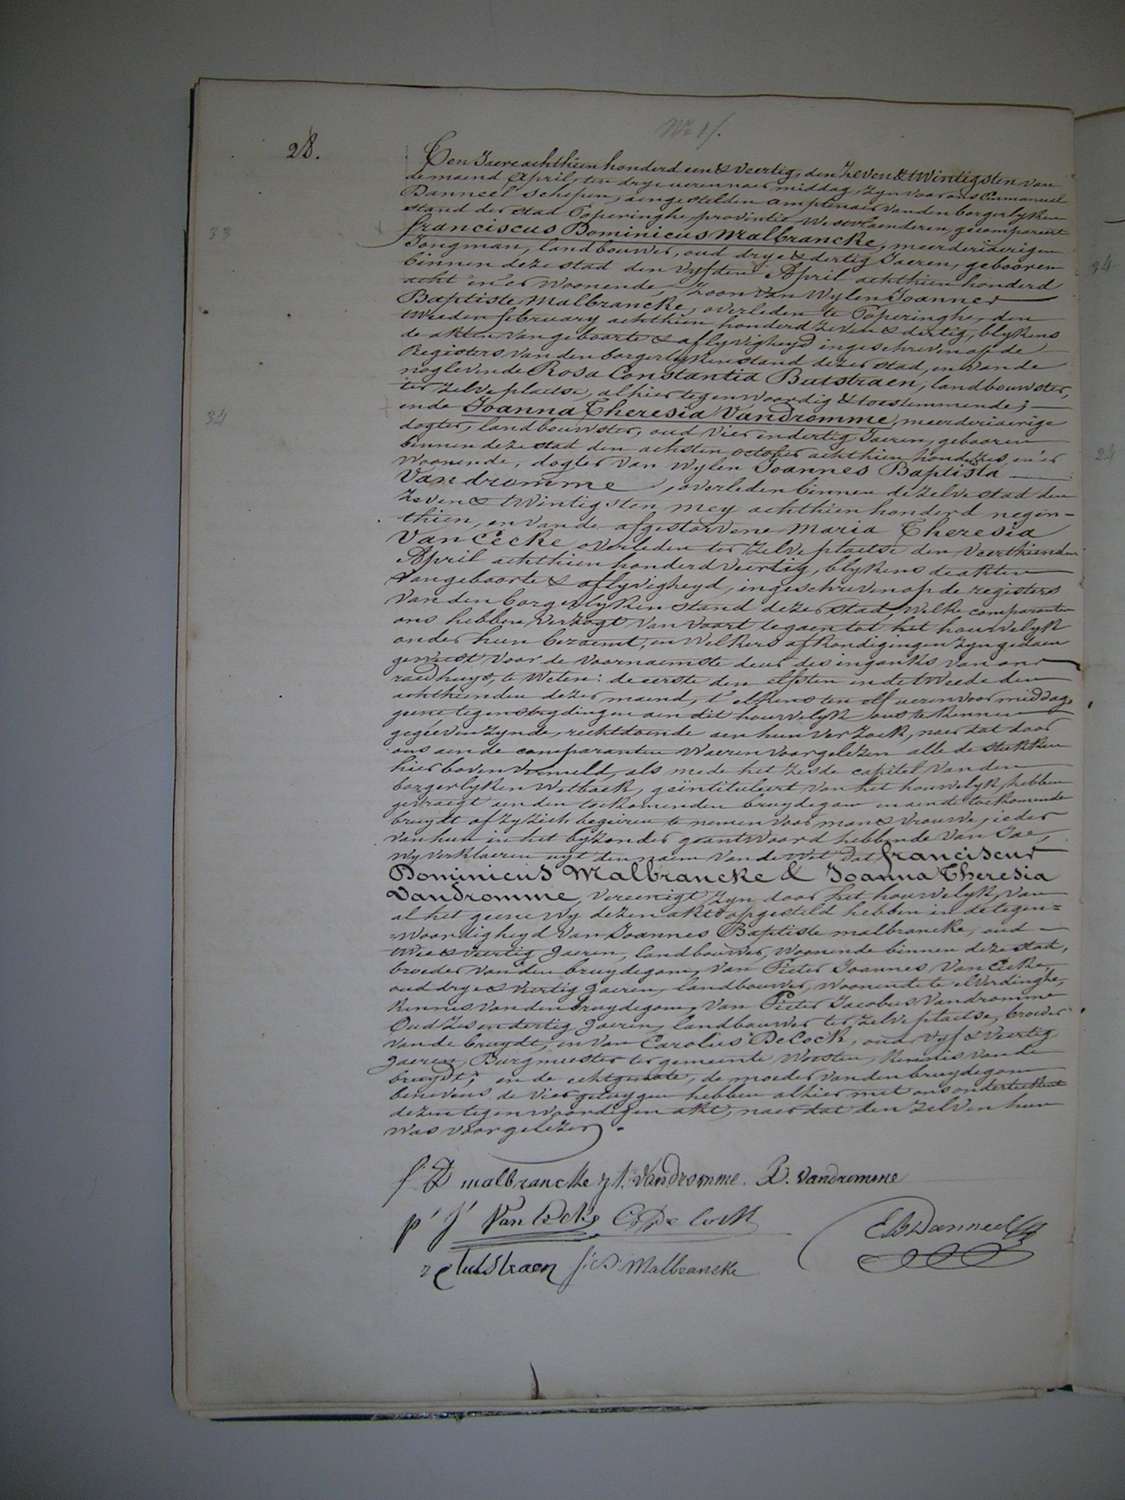 28.
Den Jaere achthien honderd een & veertig, den Zeven & twintigsten van
de maend April, ten drye ueren naer middag, zyn voor ons Emmanuel
Danneel Schepen, aengestelden amptenaer van den borgerlyken
stand der stad Poperinghe, provintie Westvlaenderen, gecompareert
33
franciscus Dominicus Malbrancke, meerderjaerigen
Jongman, landbouwer, oud drye & dertig Jaeren, gebooren
binnen deze stad den vyfden April achthien honderd
acht en er woonende Zoon van Wylen Joannes
Baptiste Malbrancke, overleden te Poperinghe, den
tweeden february achthien honderd zeven & dertig, blykens
de akten van geboorte & aflyvigheyd ingeschreven op de
Registers van den borgerlyken stand dezer stad, en van de
nog levende Rosa Constantia Butstraen, landbouwster,
ter zelve plaetse, alhier tegenwoordig & toestemmende;
34
ende Joanna Theresia Vandromme, meerderjaerige
dogter, landbouwster, oud vier en dertig Jaeren, gebooren
binnen deze stad den achsten october achthien honderd zes en er
woonende, dogter van wylen Joannes Baptista
Vandromme, overleden binnen de zelve stad den
Zeven & twintigsten mey achthien honderd negen-
thien, en van de afgestorvene Maria Theresia
Van Cécke overleden ter zelve plaetse den veerthienden
April achthien honderd veertig, blykens de akten
van geboorte & aflyvigheyd, ingeschreven op de registers
van den borgerlyken stand dezer stad, welke comparanten
ons hebben verzogt van voort te gaen tot het houwelyk
onder hun beraemt, en welkers afkondigingen zyn gedaen
geweest voor de voornaemste deur des ingangs van ons
raedhuys, te weten: de eerste den elfsten en de tweede den
achthienden dezer maend, t'elkens ten elf ueren voor middag,
geene tegenstrydingen aen dit houwelyk ons te kennen
gegeeven zynde, rechtdoende aen hun verzoek, naer dat door
ons aen de comparanten waeren voorgelezen alle de stukken
hier boven vermeld, als mede het zesde capitel van den
borgerlyken Wetboek, geintituleert van het houwelyk, hebben
gevraegt aen den toekomenden bruydegom en aen de toekomende
bruydt of zy zich begeiren te nemen voor man & vrouwe, ieder
van hun in het byzonder geantwoord hebbende van Jae,
Wy verklaeren uyt den naem van de wet dat franciscus
Dominicus Malbrancke & Joanna Theresia
Vandromme, vereenigt zyn door het houwelyk, van
al het geene wy dezen akt opgesteld hebben in de tegen=
=woordigheyd van Joannes Baptiste malbrancke, oud
twee & veertig Jaeren, landbouwer, woonende binnen deze stad,
broeder van den bruydegom, van Pieter Joannes Van Cécke,
oud drye & veertig Jaeren, landbouwer, woonende te elverdinghe,
kennis van den bruydegom, van Pieter Jacobus Vandromme
oud zes en dertig Jaeren, landbouwer ter zelve plaetse, broeder
van de bruydt, en van Carolus De Cock, oud vyf & veertig
Jaeren, Burgmeester ter gemeente Woesten, kennis van de
bruydt; en de echtgenote, de moeder van den bruydegom
benevens de vier getuygen hebben alhier met ons onderteekent
dezen tegenwoordigen akt, naer dat den zelven hun
was voorgelezen.
f. D malbrancke J t. Vandromme. P. vandromme
p' J' Van Cécke C De Cock
EB Danneel
r Butstraen J: B Malbrancke
34
24